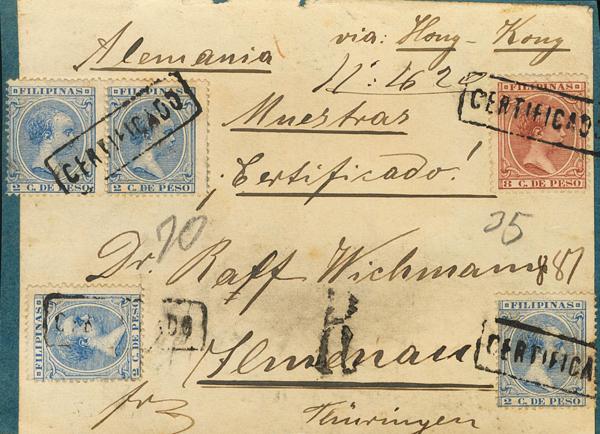 Alemania
via: Hong-Kong
Muestras
¡Certificado!
FILIPINAS
2 C. DE PESO
FILIPINAS
2 C. DE PESO
CERTIFICADO
FILIPINAS
8 C. DE PESO
CERTIFICADO
70
Dr. Raff Wichmann
R
Thüringen
FILIPINAS
2 C. DE PESO
FILIPINAS
2 C. DE PESO
CERTIFICA